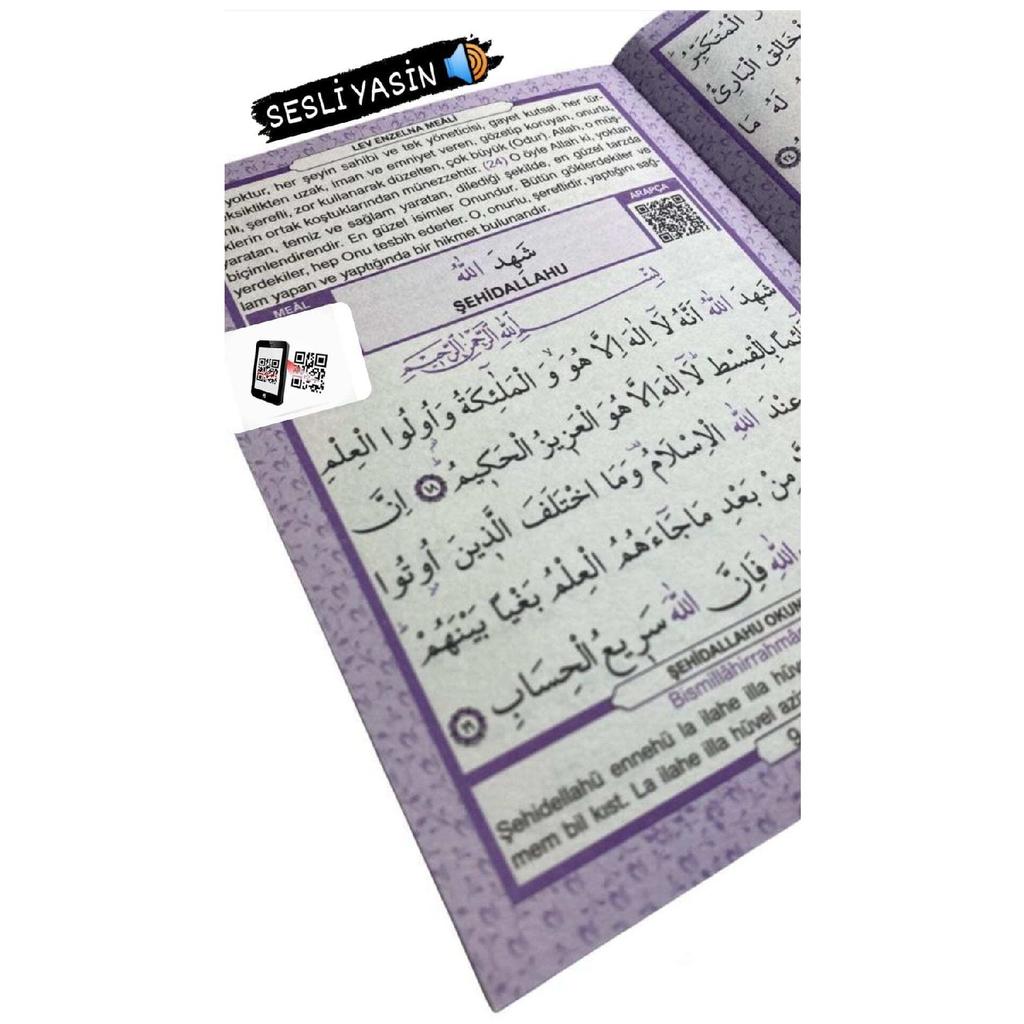 SESLİ YASİN
LEV ENZELNA MEÂLİ
yoktur, her şeyin sahibi ve tek yöneticisi, gayet kutsal, her tür-
eksiklikten uzak, iman ve emniyet veren, gözetip koruyan, onurlu,
şerefli, zor kullanarak düzelten, çok büyük (Odur) Allah, o müş-
klerin ortak koştuklarından münezzehtir. (24) O öyle Allah ki, yoktan
yaratan, temiz ve sağlam yaratan, dilediği şekilde, en güzel tarzda
biçimlendirendir. En güzel isimler Onundur. Bütün göklerdekiler ve
yerdekiler, hep Onu tesbih ederler. O, onurlu, şereflidir, yaptığını sağ-
lam yapan ve yaptığında bir hikmet bulunandır.
ARAPÇA
MEÂL
شَهِدَ اللهُ
ŞEHİDALLAHU
بِسْمِ اللهِ الرَّحْمٰنِ الرَّحِيمِ
شَهِدَ اللهُ اَنَّهُ لَا اِلٰهَ اِلَّا هُوَ وَ الْمَلٰئِكَةُ وَ اُولُوا الْعِلْمِ
قَائِمًا بِالْقِسْطِ لَا اِلٰهَ اِلَّا هُوَ الْعَزِيزُ الْحَكِيمُ ﴿١٨﴾ اِنَّ
عِنْدَ اللهِ الْاِسْلَامُ وَمَا اخْتَلَفَ الَّذِينَ اُوتُوا
مِنْ بَعْدِ مَا جَاءَهُمُ الْعِلْمُ بَغْيًا بَيْنَهُمْ
اللهِ فَاِنَّ اللهَ سَرِيعُ الْحِسَابِ ﴿١٩﴾
ŞEHİDALLAHU OKUN
Bismillâhirrahmâ
Şehidellahü ennehü la ilahe illa hüv
mem bil kıst. La ilahe illa hüvel azi
9
الْمُتَكَبِّرُ
الْخَالِقُ الْبَارِئُ
لَهُ مَا